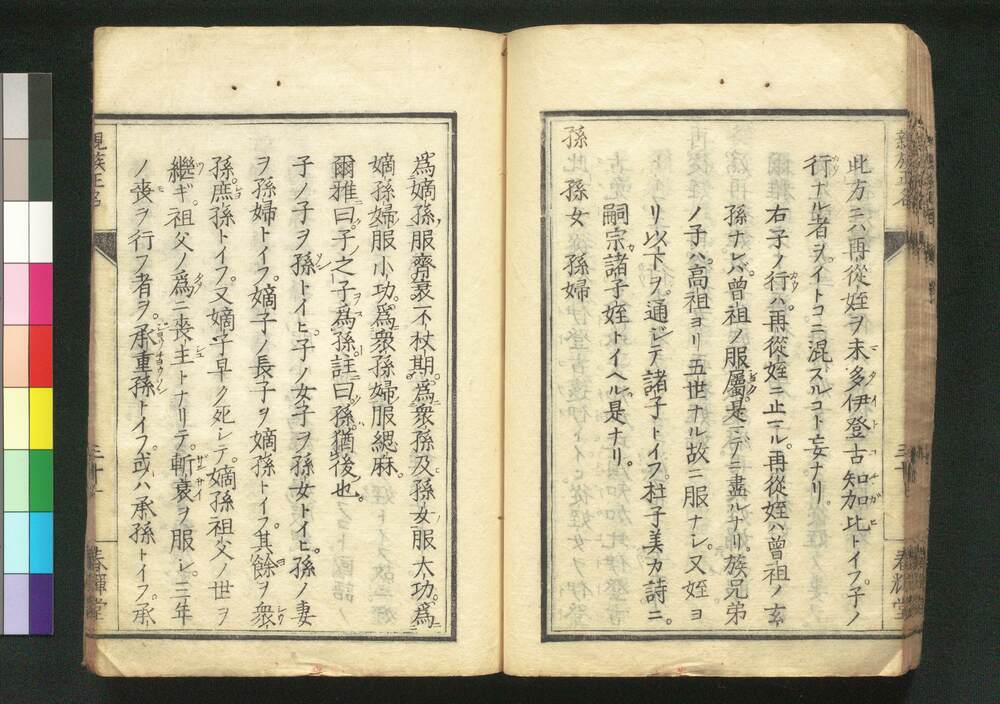 此方ニハ再從姪ヲ末多伊登古知加比トイフ。子ノ
行ナル者ヲ。イトコニ混スルコト妄ナリ。
右子ノ行ハ。再從姪ニ止ル。再從姪ハ曾祖ノ玄
孫ナレバ。曾祖ノ服屬是ニテニ盡ルナリ。族兄弟
ノ子ハ。高祖ヨリ五世ナル故ニ服ナシ。又姪ヨ
リ以下ヲ。通ジテ諸子トイフ。杜子美カ詩ニ。
嗣宗諸子姪トイヘル。是ナリ。
孫 孫女 孫婦
爲嫡孫服齊衰不杖期。爲衆孫及孫女服大功。爲
嫡孫婦服小功。爲衆孫婦服緦麻。
爾雅曰。子之子爲孫。註曰。孫猶後也。
子ノ子ヲ孫トイヒ。子ノ女子ヲ孫女トイヒ。孫ノ妻
ヲ孫婦トイフ。嫡子ノ長子ヲ嫡孫トイフ。其餘ヲ衆
孫。庶孫トイフ。又嫡子早ク死シテ。嫡孫祖父ノ世ヲ
繼ギ。祖父ノ爲ニ喪主トナリテ。斬衰ヲ服シ。三年
ノ喪ヲ行フ者ヲ。承重孫トイフ。或ハ承孫トイフ。承
親族正名
三十一
春輝堂
春輝堂